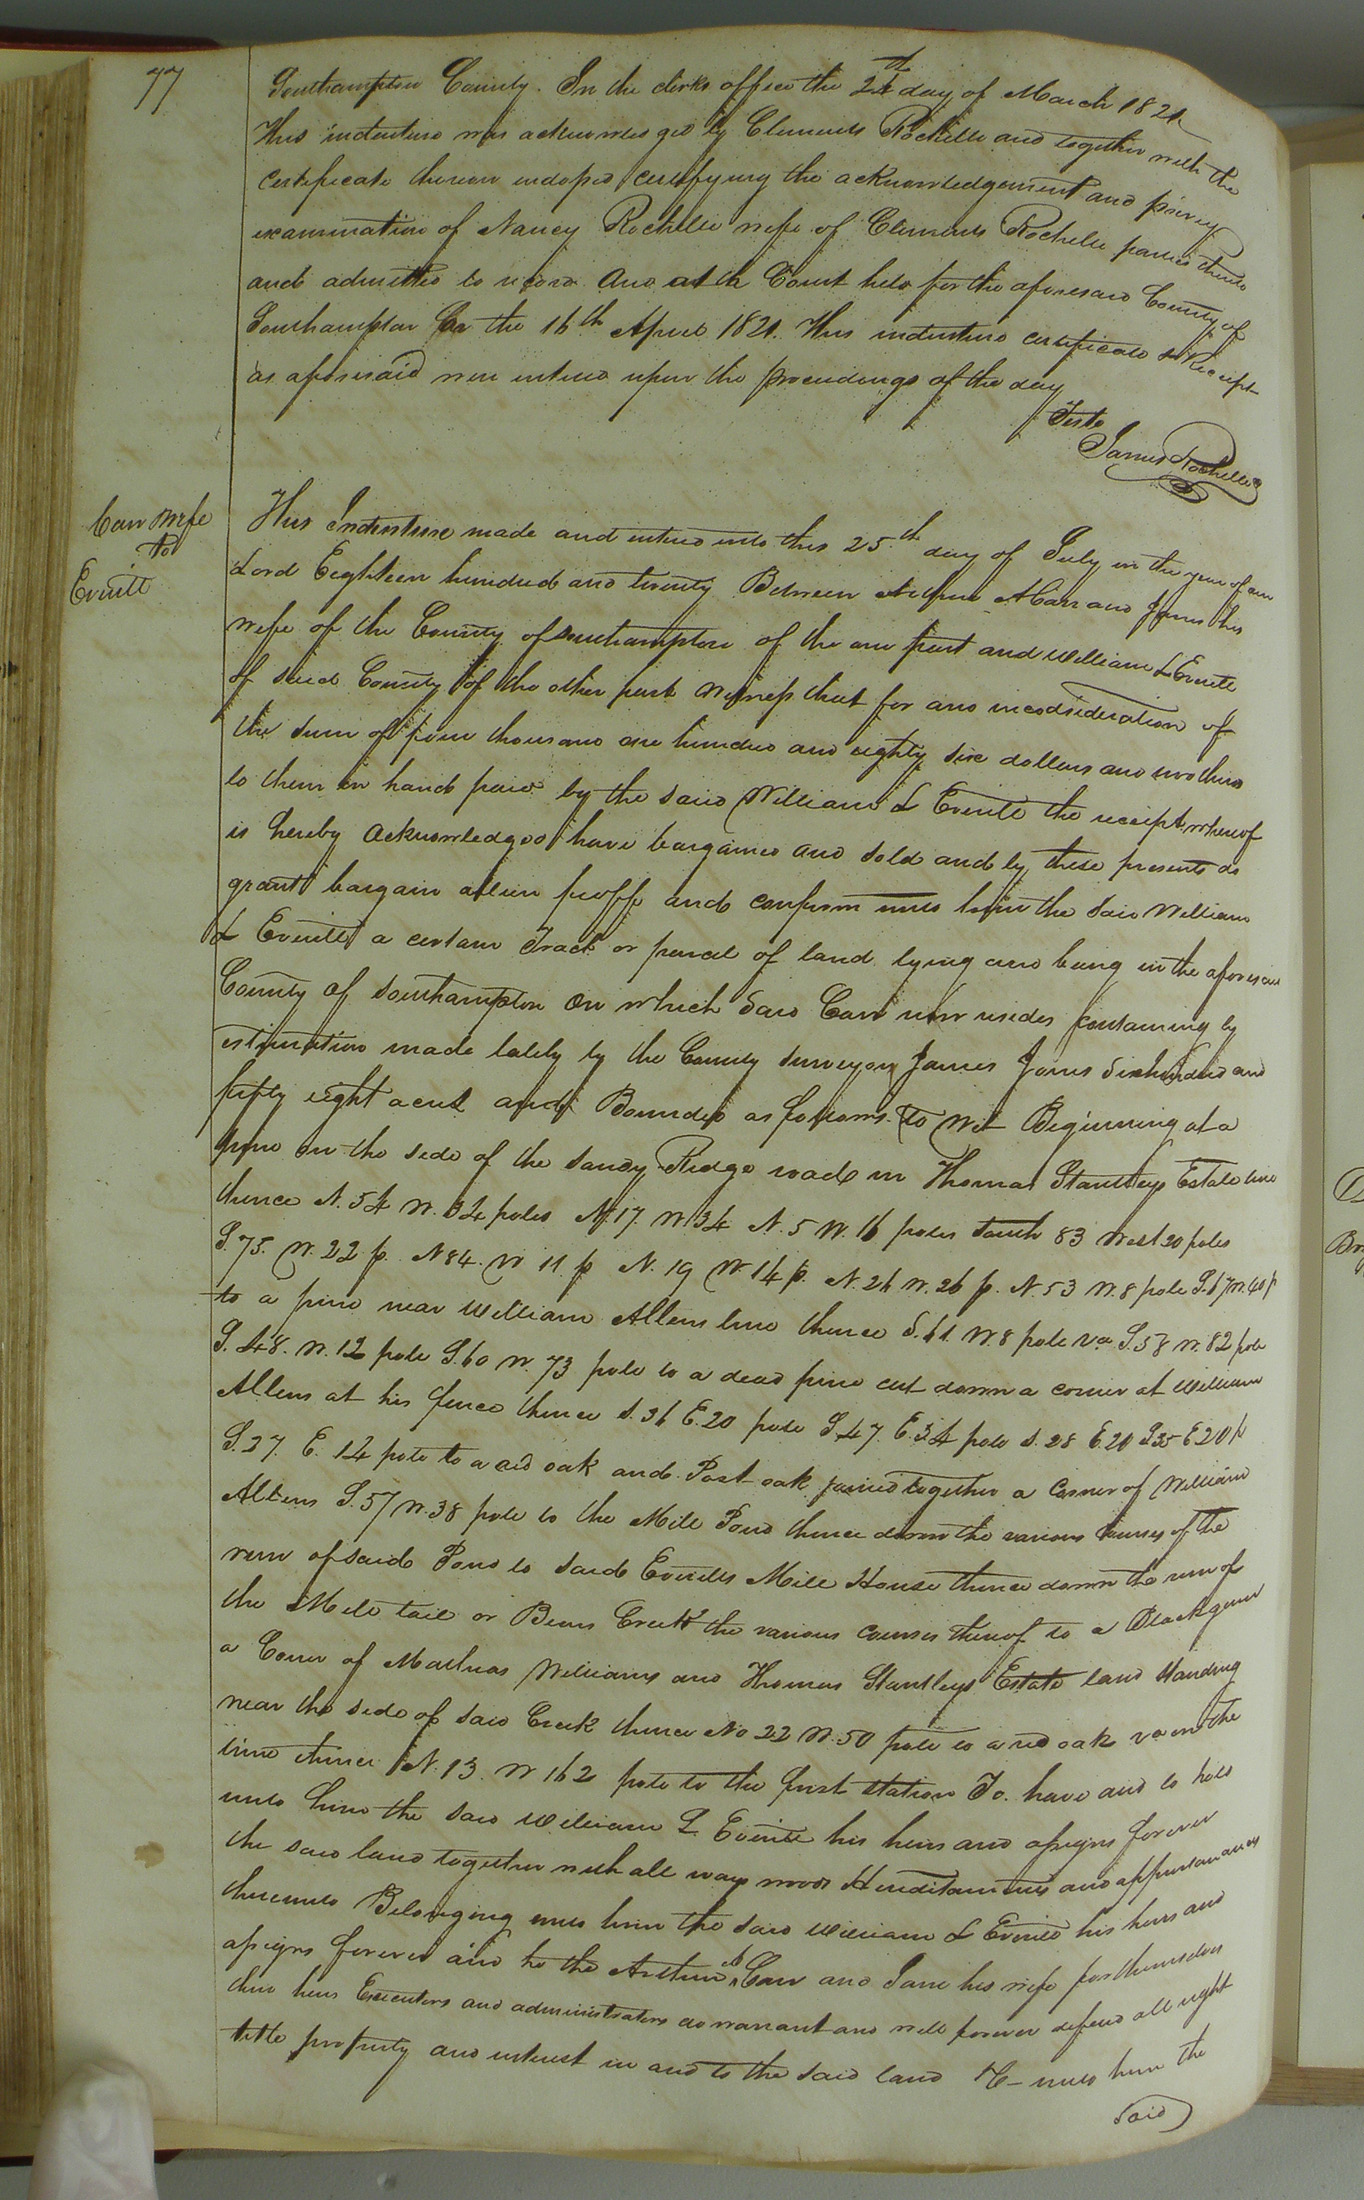 77
Southampton County. In the clerks office the 24th day of March 1821
This indenture was acknowledged by Clements Rochelle and together with the
certificate thereon indorsed certifying the acknowledgement and privey
examination of Nancy Rochelle wife of Clements Rochelle parties thereto
and admitted to record And at a Court held for the aforesaid County of
Southampton the 16th April 1821. This indenture certificate & Receipt
as aforesaid were entered upon the proceedings of the day
Teste
James Rochelle
Carr & Wife
to
Everitt
This Indenture made and entered into this 25th day of July in the year of our
Lord Eighteen hundred and twenty Between Arthur A Carr and Jane his
wife of the County of Southampton of the one part and William L Everitt
of said County of the other part Witness that for and in consideration of
the sum of four thousand one hundred and eighty six dollars and two thirds
to them in hand paid by the said William L Everitt the receipt whereof
is hereby acknowledged have bargained and sold and by these presents do
grant bargain alien feoff and confirm unto him the said William
L Everitt a certain Track or parcel of land lying and being in the aforesaid
County of Southampton on which said Carr now resides containing by
estimation made lately by the County surveyor James Jones Six hundred and
fifty eight acres and Bounded as follows to Wit Beginning at a
pine on the side of the Sandy Ridge road in Thomas Stantleys Estate line
thence N. 54 W. 34 poles N 17. W 34 N. 5 W. 16 poles South 83 West 20 poles
S. 75. W. 22 p. N 84. W 11. p N. 19 W. 14 p. N. 26 W. 26 p. N. 53 W. 8 pole S. 67 W. 40 p
to a pine near William Allens line thence S. 61. W. 8 pole va S. 58 W. 82 pole
S. 48. W. 12 pole S. 60 W. 73 pole to a dead pine cut down a corner at William
Allens at his fence thence S. 36 E. 20 pole S. 47. E. 34 pole S. 28 E. 20 S 35 E 20 p
S. 27. E. 14 pole to a red oak and Post oak joined together a Corner of William
Allens S. 57 W. 38 pole to the Mill Pond thence down the various Courses of the
run of said Pond to said Everitts Mill House thence down the run of
the Mill tail or Creek the various courses thereof to a Blackgum
a Corner of Mathias Williams and Thomas Stantleys Estate land standing
near the side of said Creek thence No 22 W. 50 pole to a red oak va on the
line thence N. 13. W 162 pole to the first station To have and to hold
unto him the said William L Everitt his heirs and assigns forever
the said land together with all ways woods Hereditaments and appurtenances
thereunto Belonging unto him the said William L Everitt his heirs and
assigns forever and he the Arthur A Carr and Jane his wife for themselves
their heirs Executors and administrators do warrant and will forever defend all right
title property and interest in and to the said land &c unto him the
said